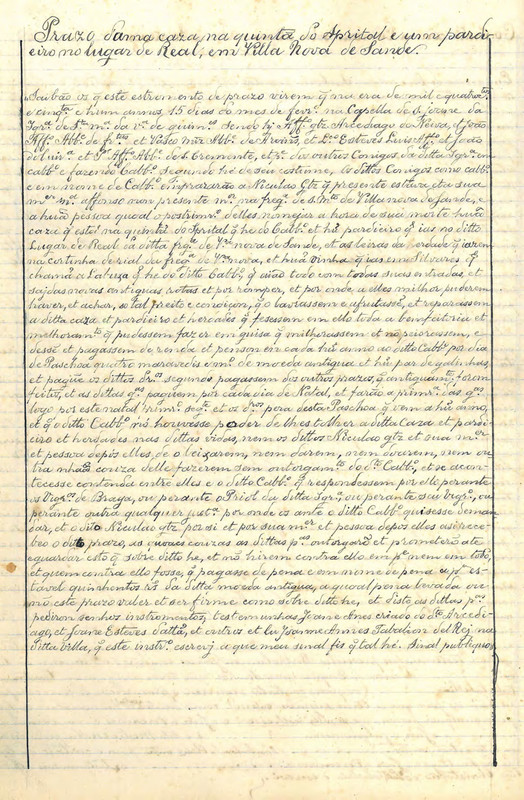 Prazo d'uma caza, na quinta do Sprital e um pardi-
eiro no lugar de Real, em Villa Nova de Sande.
Saibão os q̃ este estromento de prazo virem q̃ na era de mil e quatroc.tos
e cinq.ta e hum annos, 15 dias do mes de fevr.º na Capella de S.
Igr.a de S.ta M.a da V.a de Guim.es sendo hi Aff.º glz Arcediago do Neiva, et João
Aff.º Abb.e de et Vasco Miz Abb.e de et L.ço Esteves
et P.º Aff.º Abb.e de S. Cremente, et dos outros Conigos da ditta Igr.a em
cabb.º e fazendo Cabb.º segundo hé de seu costume, os dittos Conigos como cabb.º
e em nome de Cabb.º emprazarão a Niculao Glz q̃ presente estava, eta sua
m.er M.a Affonso non presente m.es na freg.a de S. M.a de Villanova de Sande, e
a huã pessoa qual o postrim.ro delles nomejar a hora de sua morte huã
caza q̃ está na quintã do Sprital q̃ he do Cabb.º et hũ pardieiro q̃ jas no ditto
Lugar de Real da ditta frg.a de V.a nova de Sande, et as leiras da herdade q̃ jazem
na cortinha de rial da freg.a de V.a nova, et huã vinha q̃ jas em Silvares q̃
chamã a Lateza q̃ he do ditto Cabb.º q̃ ajão todo com todas suas entradas, et
sajdas novas antiguas rotas et por romper, et por onde a elles milhor puderem
haver, et achar, so tal preito e condiçon, q̃ o lavrassem e afruitassẽ, et reparassem
a ditta caza et pardieiro et herdades q̃ fesessem em ello toda a bemfeitoria et
melhoram.to q̃ pudessem fazer em guisa q̃ milhorassem et não peiorassem, e
dessẽ et pagassem de renda et penson em cada hũ anno ao ditto Cabb.º por dia
de Paschoa quatro maravedis e m.º de moeda antigua et hũ par de galinhas,
et pague os dittos dr.os segundo pagassem dos outros prazos, q̃ antiguam.te forem
feitos, et as dittas g.as paguem por cada via de Natal, et farão a primr.a das g.as
logo por este natal primr.º seg.te et os dr.os pora desta Paschoa q̃ vem a hũ anno,
et q̃ o ditto Cabb.º nõ houvesse poder de lhes tolher a ditta Caza et pardi-
eiro et herdades nas dittas vidas, nem os dittos Niculao glz et sua m.er
et pessoa depois elles, de o leixarem, nem darem, nem doarem, nem ou-
tra nhuã couza dello fazerem sem outorgam.to do d.to Cabb.º, et se acon-
tecesse contenda entre elles e o ditto Cabb.º q̃ respondessem por ello perante
os Vigr.os de Braga, ou perante o Priol da ditta Igr.a ou perante seu Vigr.º, ou
perante outra qualquer just.a por onde os ante o ditto Cabb.º quisesse deman-
dar, et o dito Niculao glz por si et por sua m.er et pessoa depos elles assi rece-
beo o dito prazo, as quoaes couzas as dittas p.as outorgarõ et prometerõ ate
eguardar esto q̃ sobre ditto he, et nõ hirem contra ello em p.te nem em todo,
et quem contra ello fosse, q̃ pagasse de pena e em nome de pena a p.te es-
tavel quinhentos da ditta moeda antigua, a quoal pena levada ou
nõ este prazo valer et ser firme como sobre ditto he, et desto as dittas p.as
pedirom senhos instromentos, testemunhas Joane Anes criado do d.to Arcedi-
ago, et Joane Esteves et outros et Eu Joanne Annes Tabalion del Rej na
ditta villa, q̃ este instr.º escrevj, e aque meu sinal fis q̃ tal hé. Sinal publiquo